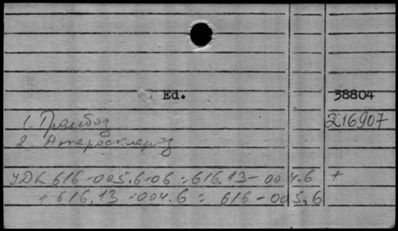 Ed. 38804
1. Тромбоз 216907
2. Атеросклероз
УДК 616-005.6-06:616.13-004.6 +
+ 616.13-004.6 : 616-005.6